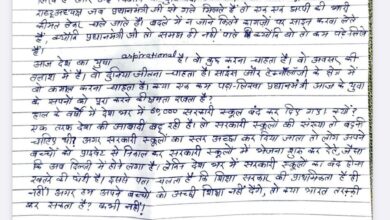 राष्ट्राध्यक्ष जब प्रधानमंत्री जी से गले मिलते हैं तो एक एक झप्पी की भारी
कीमत लेकर चले जाते हैं। बदले में न जाने कितने कागजों पर साइन करवा लेते
हैं, क्योंकि प्रधानमंत्री जी तो समझ ही नहीं पाते वो तो कम पढ़े लिखे
हैं।
आज देश का युवा aspirational है। वो कुछ करना चाहता है। वो अवसर की
तलाश में है। वो दुनिया जीतना चाहता है। साइंस और टेक्नोलॉजी के क्षेत्र में
वो कमाल करना चाहता है। क्या एक कम पढ़ा-लिखा प्रधानमंत्री आज के युवा
के सपनों को पूरा करने की क्षमता रखता है?
हाल के वर्षों में देश भर में 60,000 सरकारी स्कूल बंद कर दिए गए। क्यों?
एक तरफ देश की आबादी बढ़ रही है। तो सरकारी स्कूलों की संख्या तो बढ़नी
चाहिए थी? अगर सरकारी स्कूलों का स्तर अच्छा कर दिया जाता तो लोग अपने
बच्चों को प्राइवेट से निकाल कर सरकारी स्कूलों में भेजना शुरू कर देते, जैसा
कि अब दिल्ली में होने लगा है। लेकिन देश भर में सरकारी स्कूलों का बंद होना
खतरे की घंटी है। इससे पता चलता है कि शिक्षा सरकार की प्राथमिकता है ही
नहीं। अगर हम अपने बच्चों को अच्छी शिक्षा नहीं देंगे, तो क्या भारत तरक्की
कर सकता है? कभी नहीं।